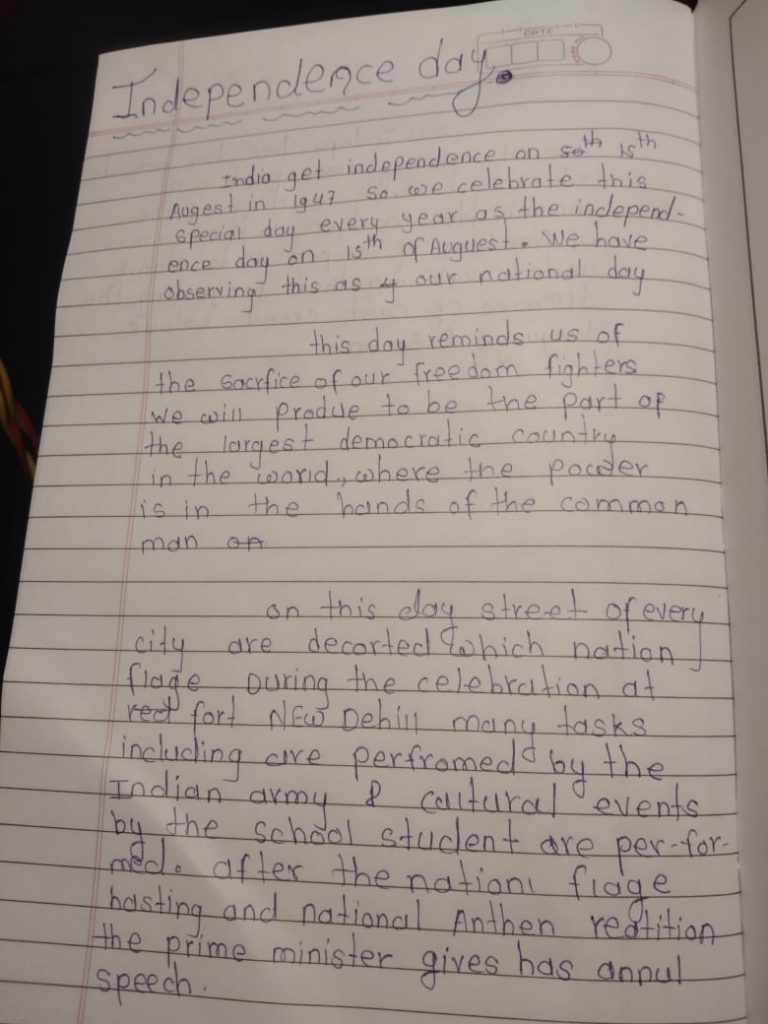 DATE
Independence day
India get independence on 50th 15th
Augest in 1947 so we celebrate this
special day every year as the independ-
ence day on 15th of Auguest. We have
observing this as y our national day
this day reminds us of
the sacrfice of our freedom fighters
we will produe to be the part of
the largest democratic country
in the world, where the poader
is in the hands of the common
man on
on this day street of every
city are decorted which nation
flage During the celebration at
red fort NEW Dehill many tasks
including are perfromed by the
Indian army & cultural events
by the school student are per-for-
med. after the nationl flage
hasting and national Anthen reatition
the prime minister gives has annul
speech.